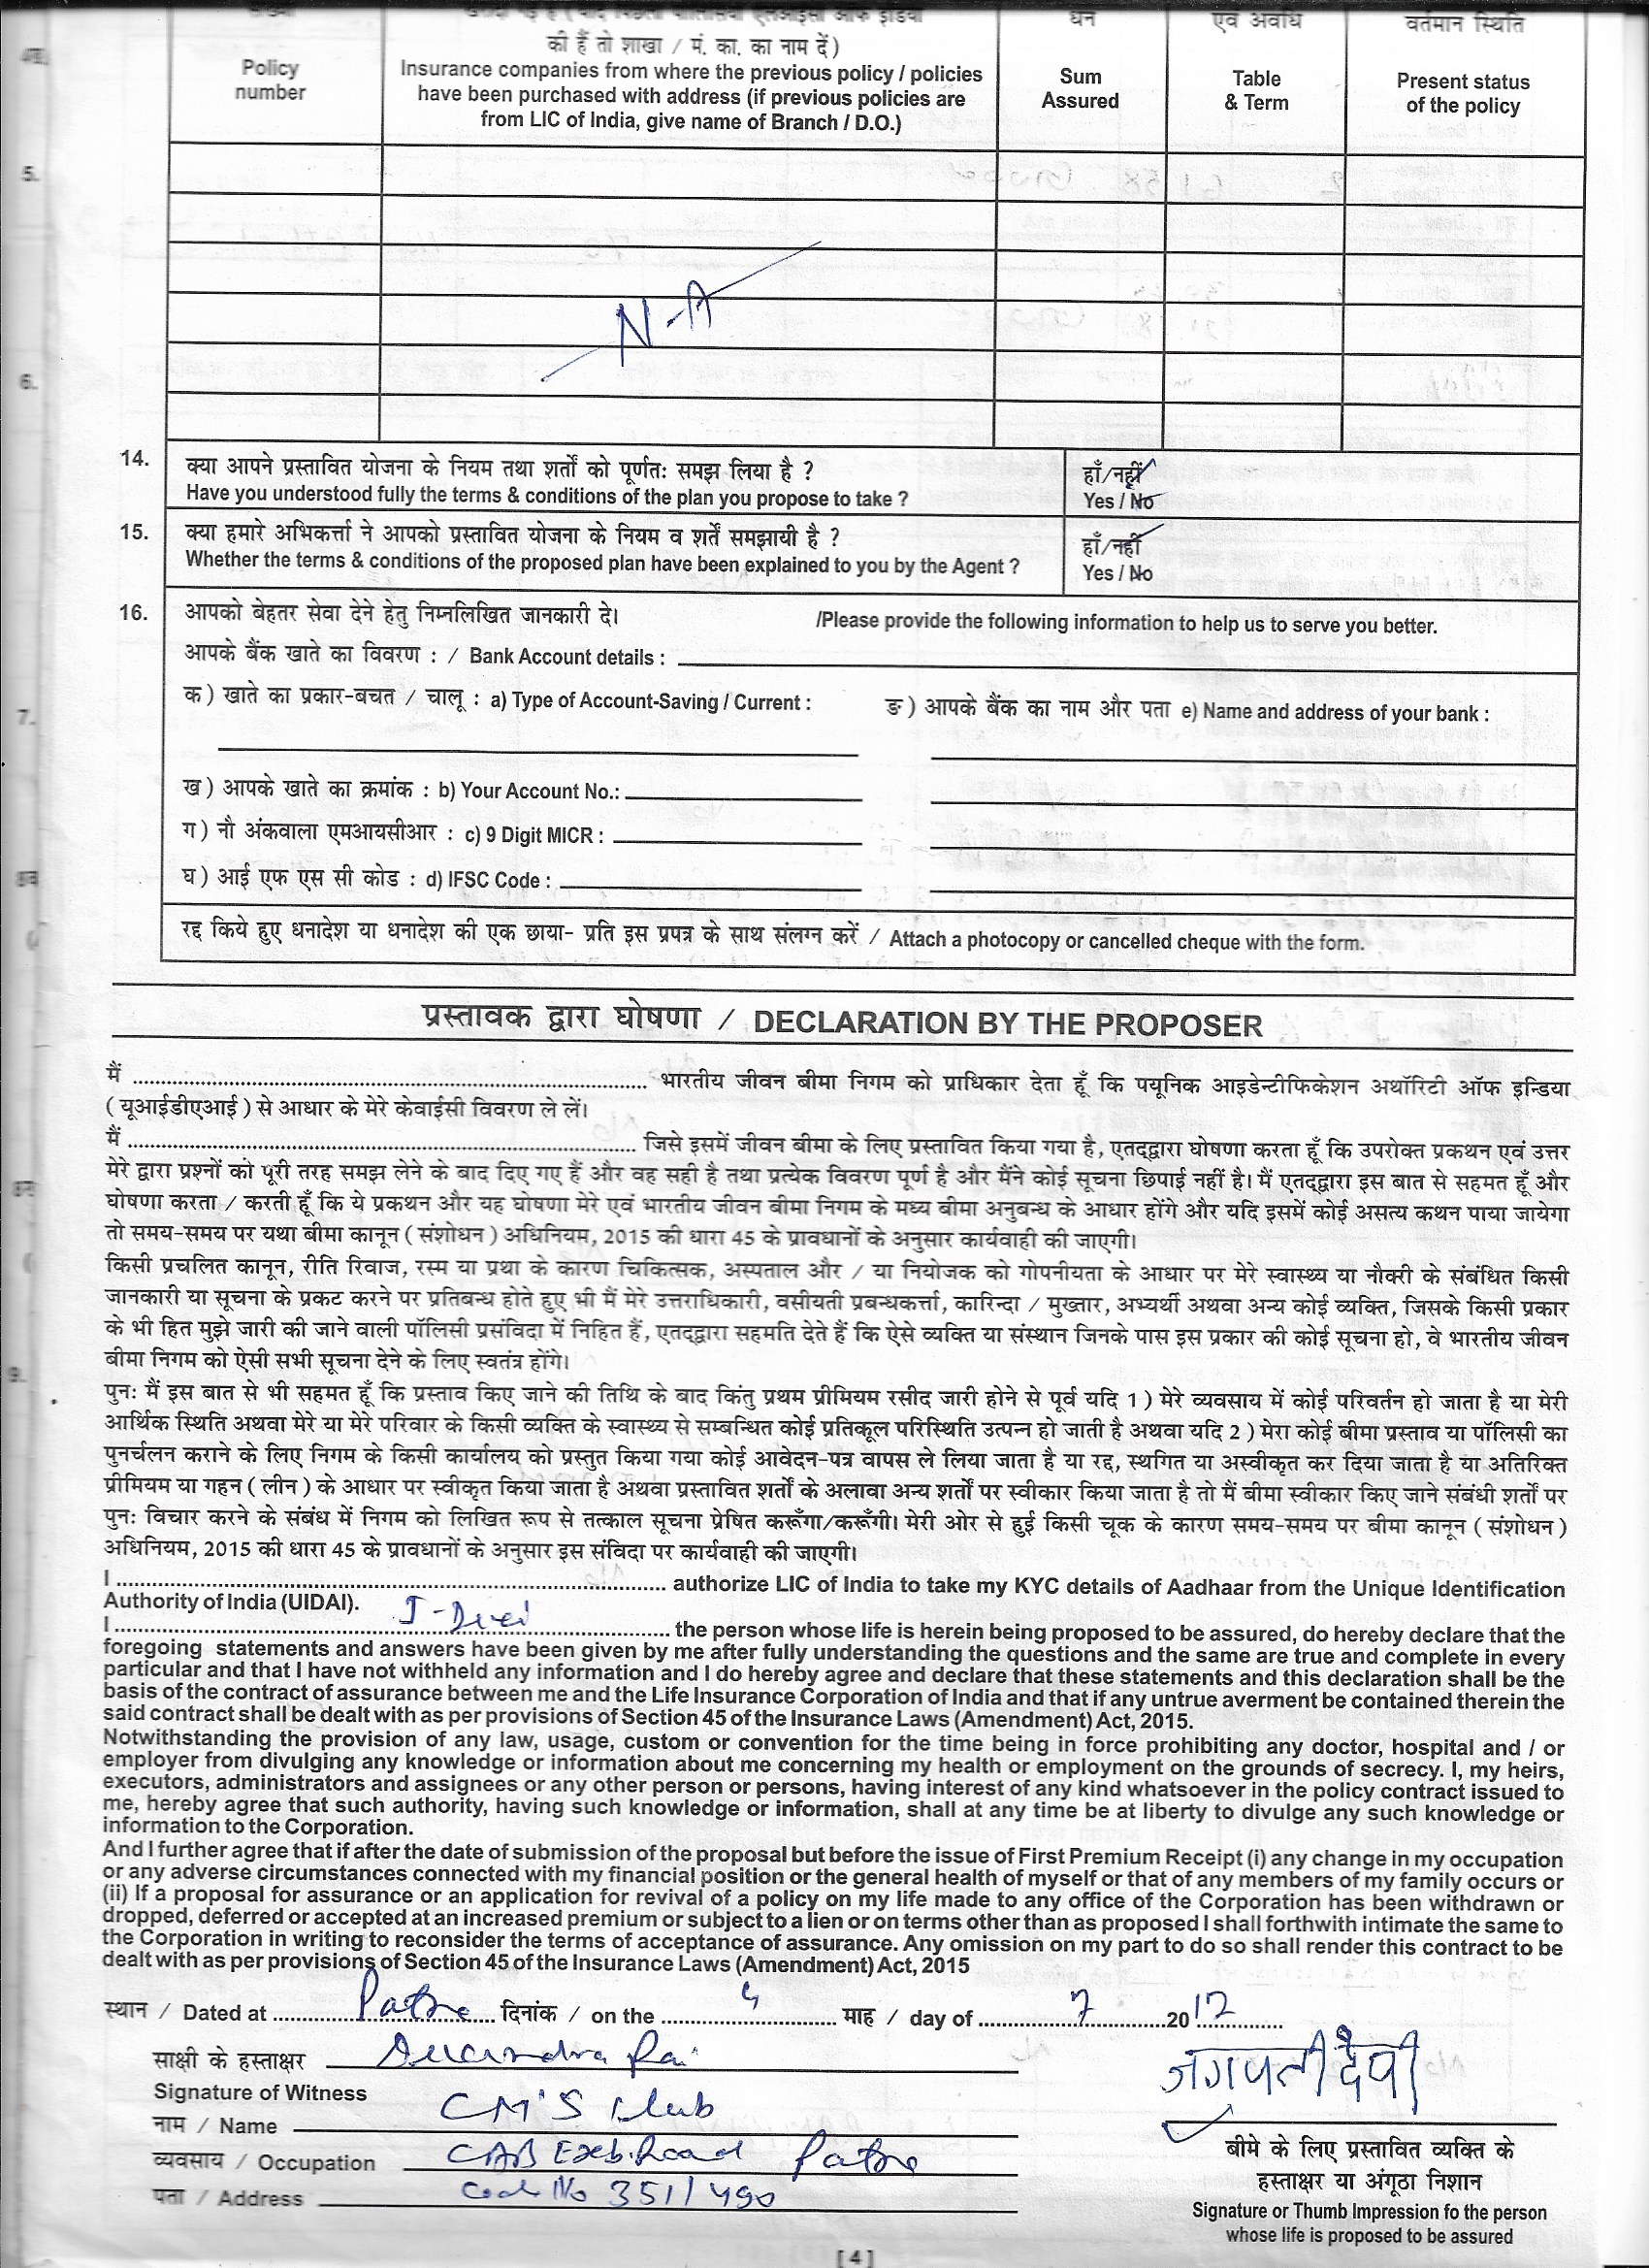 की हैं तो शाखा / मं. का. का नाम दें)
धन
एवं अवधि
वर्तमान स्थिति
Policy number
Insurance companies from where the previous policy / policies
have been purchased with address (if previous policies are
from LIC of India, give name of Branch / D.O.)
Sum Assured
Table & Term
Present status of the policy
5.
N-A
6.
14. क्या आपने प्रस्तावित योजना के नियम तथा शर्तों को पूर्णतः समझ लिया है ? हाँ/नहीं
Have you understood fully the terms & conditions of the plan you propose to take ? Yes / No
15. क्या हमारे अभिकर्त्ता ने आपको प्रस्तावित योजना के नियम व शर्तें समझायी है ? हाँ/नहीं
Whether the terms & conditions of the proposed plan have been explained to you by the Agent ? Yes / No
16. आपको बेहतर सेवा देने हेतु निम्नलिखित जानकारी दे। /Please provide the following information to help us to serve you better.
आपके बैंक खाते का विवरण : / Bank Account details :
क) खाते का प्रकार-बचत / चालू : a) Type of Account-Saving / Current : ङ) आपके बैंक का नाम और पता e) Name and address of your bank :
7.
ख) आपके खाते का क्रमांक : b) Your Account No.:
ग) नौ अंकवाला एमआयसीआर : c) 9 Digit MICR :
घ) आई एफ एस सी कोड : d) IFSC Code :
रद्द किये हुए धनादेश या धनादेश की एक छाया- प्रति इस प्रपत्र के साथ संलग्न करें / Attach a photocopy or cancelled cheque with the form.
प्रस्तावक द्वारा घोषणा / DECLARATION BY THE PROPOSER
मैं ........ भारतीय जीवन बीमा निगम को प्राधिकार देता हूँ कि पयूनिक आइडेन्टीफिकेशन अथॉरिटी ऑफ इन्डिया
(यूआईडीएआई) से आधार के मेरे केवाईसी विवरण ले लें।
मैं ........ जिसे इसमें जीवन बीमा के लिए प्रस्तावित किया गया है, एतद्द्वारा घोषणा करता हूँ कि उपरोक्त प्रकथन एवं उत्तर
मेरे द्वारा प्रश्नों को पूरी तरह समझ लेने के बाद दिए गए हैं और वह सही है तथा प्रत्येक विवरण पूर्ण है और मैंने कोई सूचना छिपाई नहीं है। मैं एतद्द्वारा इस बात से सहमत हूँ और
घोषणा करता / करती हूँ कि ये प्रकथन और यह घोषणा मेरे एवं भारतीय जीवन बीमा निगम के मध्य बीमा अनुबन्ध के आधार होंगे और यदि इसमें कोई असत्य कथन पाया जायेगा
तो समय-समय पर यथा बीमा कानून (संशोधन) अधिनियम, 2015 की धारा 45 के प्रावधानों के अनुसार कार्यवाही की जाएगी।
किसी प्रचलित कानून, रीति रिवाज, रस्म या प्रथा के कारण चिकित्सक, अस्पताल और / या नियोजक को गोपनीयता के आधार पर मेरे स्वास्थ्य या नौक्री के संबंधित किसी
जानकारी या सूचना के प्रकट करने पर प्रतिबन्ध होते हुए भी मैं मेरे उत्तराधिकारी, वसीयती प्रबन्धकर्त्ता, कारिन्दा / मुख्तार, अभ्यर्थी अथवा अन्य कोई व्यक्ति, जिसके किसी प्रकार
के भी हित मुझे जारी की जाने वाली पॉलिसी प्रसंविदा में निहित हैं, एतद्द्वारा सहमति देते हैं कि ऐसे व्यक्ति या संस्थान जिनके पास इस प्रकार की कोई सूचना हो, वे भारतीय जीवन
बीमा निगम को ऐसी सभी सूचना देने के लिए स्वतंत्र होंगे।
9.
पुनः मैं इस बात से भी सहमत हूँ कि प्रस्ताव किए जाने की तिथि के बाद किंतु प्रथम प्रीमियम रसीद जारी होने से पूर्व यदि 1) मेरे व्यवसाय में कोई परिवर्तन हो जाता है या मेरी
आर्थिक स्थिति अथवा मेरे या मेरे परिवार के किसी व्यक्ति के स्वास्थ्य से सम्बन्धित कोई प्रतिकूल परिस्थिति उत्पन्न हो जाती है अथवा यदि 2) मेरा कोई बीमा प्रस्ताव या पॉलिसी का
पुनर्चलन कराने के लिए निगम के किसी कार्यालय को प्रस्तुत किया गया कोई आवेदन-पत्र वापस ले लिया जाता है या रद्द, स्थगित या अस्वीकृत कर दिया जाता है या अतिरिक्त
प्रीमियम या गहन (लीन) के आधार पर स्वीकृत किया जाता है अथवा प्रस्तावित शर्तों के अलावा अन्य शर्तों पर स्वीकार किया जाता है तो मैं बीमा स्वीकार किए जाने संबंधी शर्तों पर
पुनः विचार करने के संबंध में निगम को लिखित रूप से तत्काल सूचना प्रेषित करूँगा/करूँगी। मेरी ओर से हुई किसी चूक के कारण समय-समय पर बीमा कानून (संशोधन)
अधिनियम, 2015 की धारा 45 के प्रावधानों के अनुसार इस संविदा पर कार्यवाही की जाएगी।
I ........ authorize LIC of India to take my KYC details of Aadhaar from the Unique Identification
Authority of India (UIDAI).
I ........ J-Devi ........ the person whose life is herein being proposed to be assured, do hereby declare that the
foregoing statements and answers have been given by me after fully understanding the questions and the same are true and complete in every
particular and that I have not withheld any information and I do hereby agree and declare that these statements and this declaration shall be the
basis of the contract of assurance between me and the Life Insurance Corporation of India and that if any untrue averment be contained therein the
said contract shall be dealt with as per provisions of Section 45 of the Insurance Laws (Amendment) Act, 2015.
Notwithstanding the provision of any law, usage, custom or convention for the time being in force prohibiting any doctor, hospital and / or
employer from divulging any knowledge or information about me concerning my health or employment on the grounds of secrecy. I, my heirs,
executors, administrators and assignees or any other person or persons, having interest of any kind whatsoever in the policy contract issued to
me, hereby agree that such authority, having such knowledge or information, shall at any time be at liberty to divulge any such knowledge or
information to the Corporation.
And I further agree that if after the date of submission of the proposal but before the issue of First Premium Receipt (i) any change in my occupation
or any adverse circumstances connected with my financial position or the general health of myself or that of any members of my family occurs or
(ii) If a proposal for assurance or an application for revival of a policy on my life made to any office of the Corporation has been withdrawn or
dropped, deferred or accepted at an increased premium or subject to a lien or on terms other than as proposed I shall forthwith intimate the same to
the Corporation in writing to reconsider the terms of acceptance of assurance. Any omission on my part to do so shall render this contract to be
dealt with as per provisions of Section 45 of the Insurance Laws (Amendment) Act, 2015
स्थान / Dated at ........ Patna ........ दिनांक / on the ........ माह / day of ........ 7 ........ 2017
साक्षी के हस्ताक्षर Rai
Signature of Witness
नाम / Name CM'S Club
व्यवसाय / Occupation CAB Exb. Road Patna
पता / Address Code No 351/490
जगपती देवी
बीमे के लिए प्रस्तावित व्यक्ति के
हस्ताक्षर या अंगूठा निशान
Signature or Thumb Impression fo the person
whose life is proposed to be assured
[4]